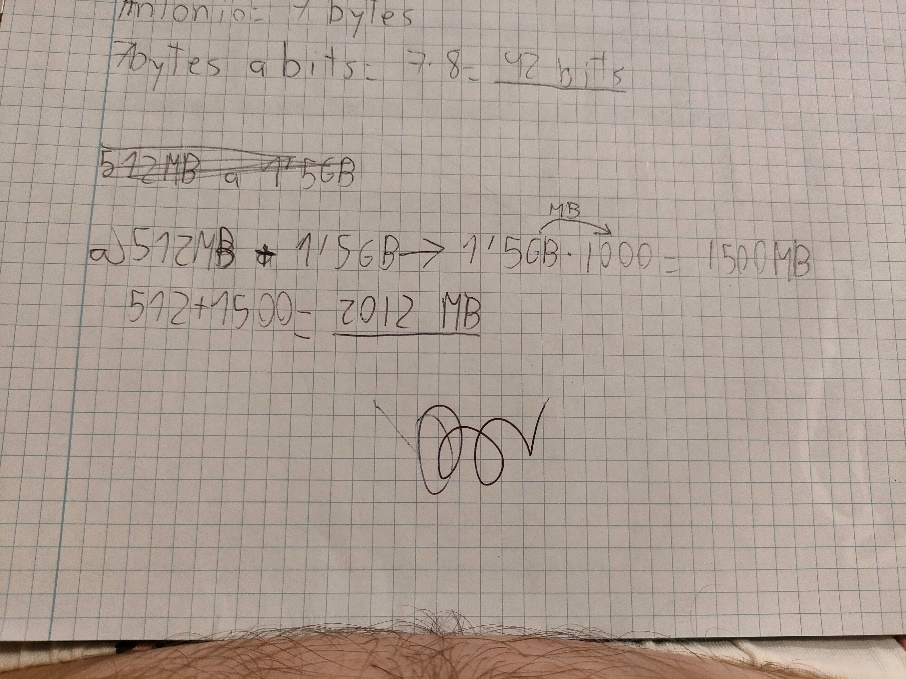 Antonio= 7 bytes
7bytes a bits= 7·8= 42 bits
512MB a 1'5GB
a) 512MB + 1'5GB → 1'5GB·1000 = 1500MB
MB
512+1500= 2012 MB